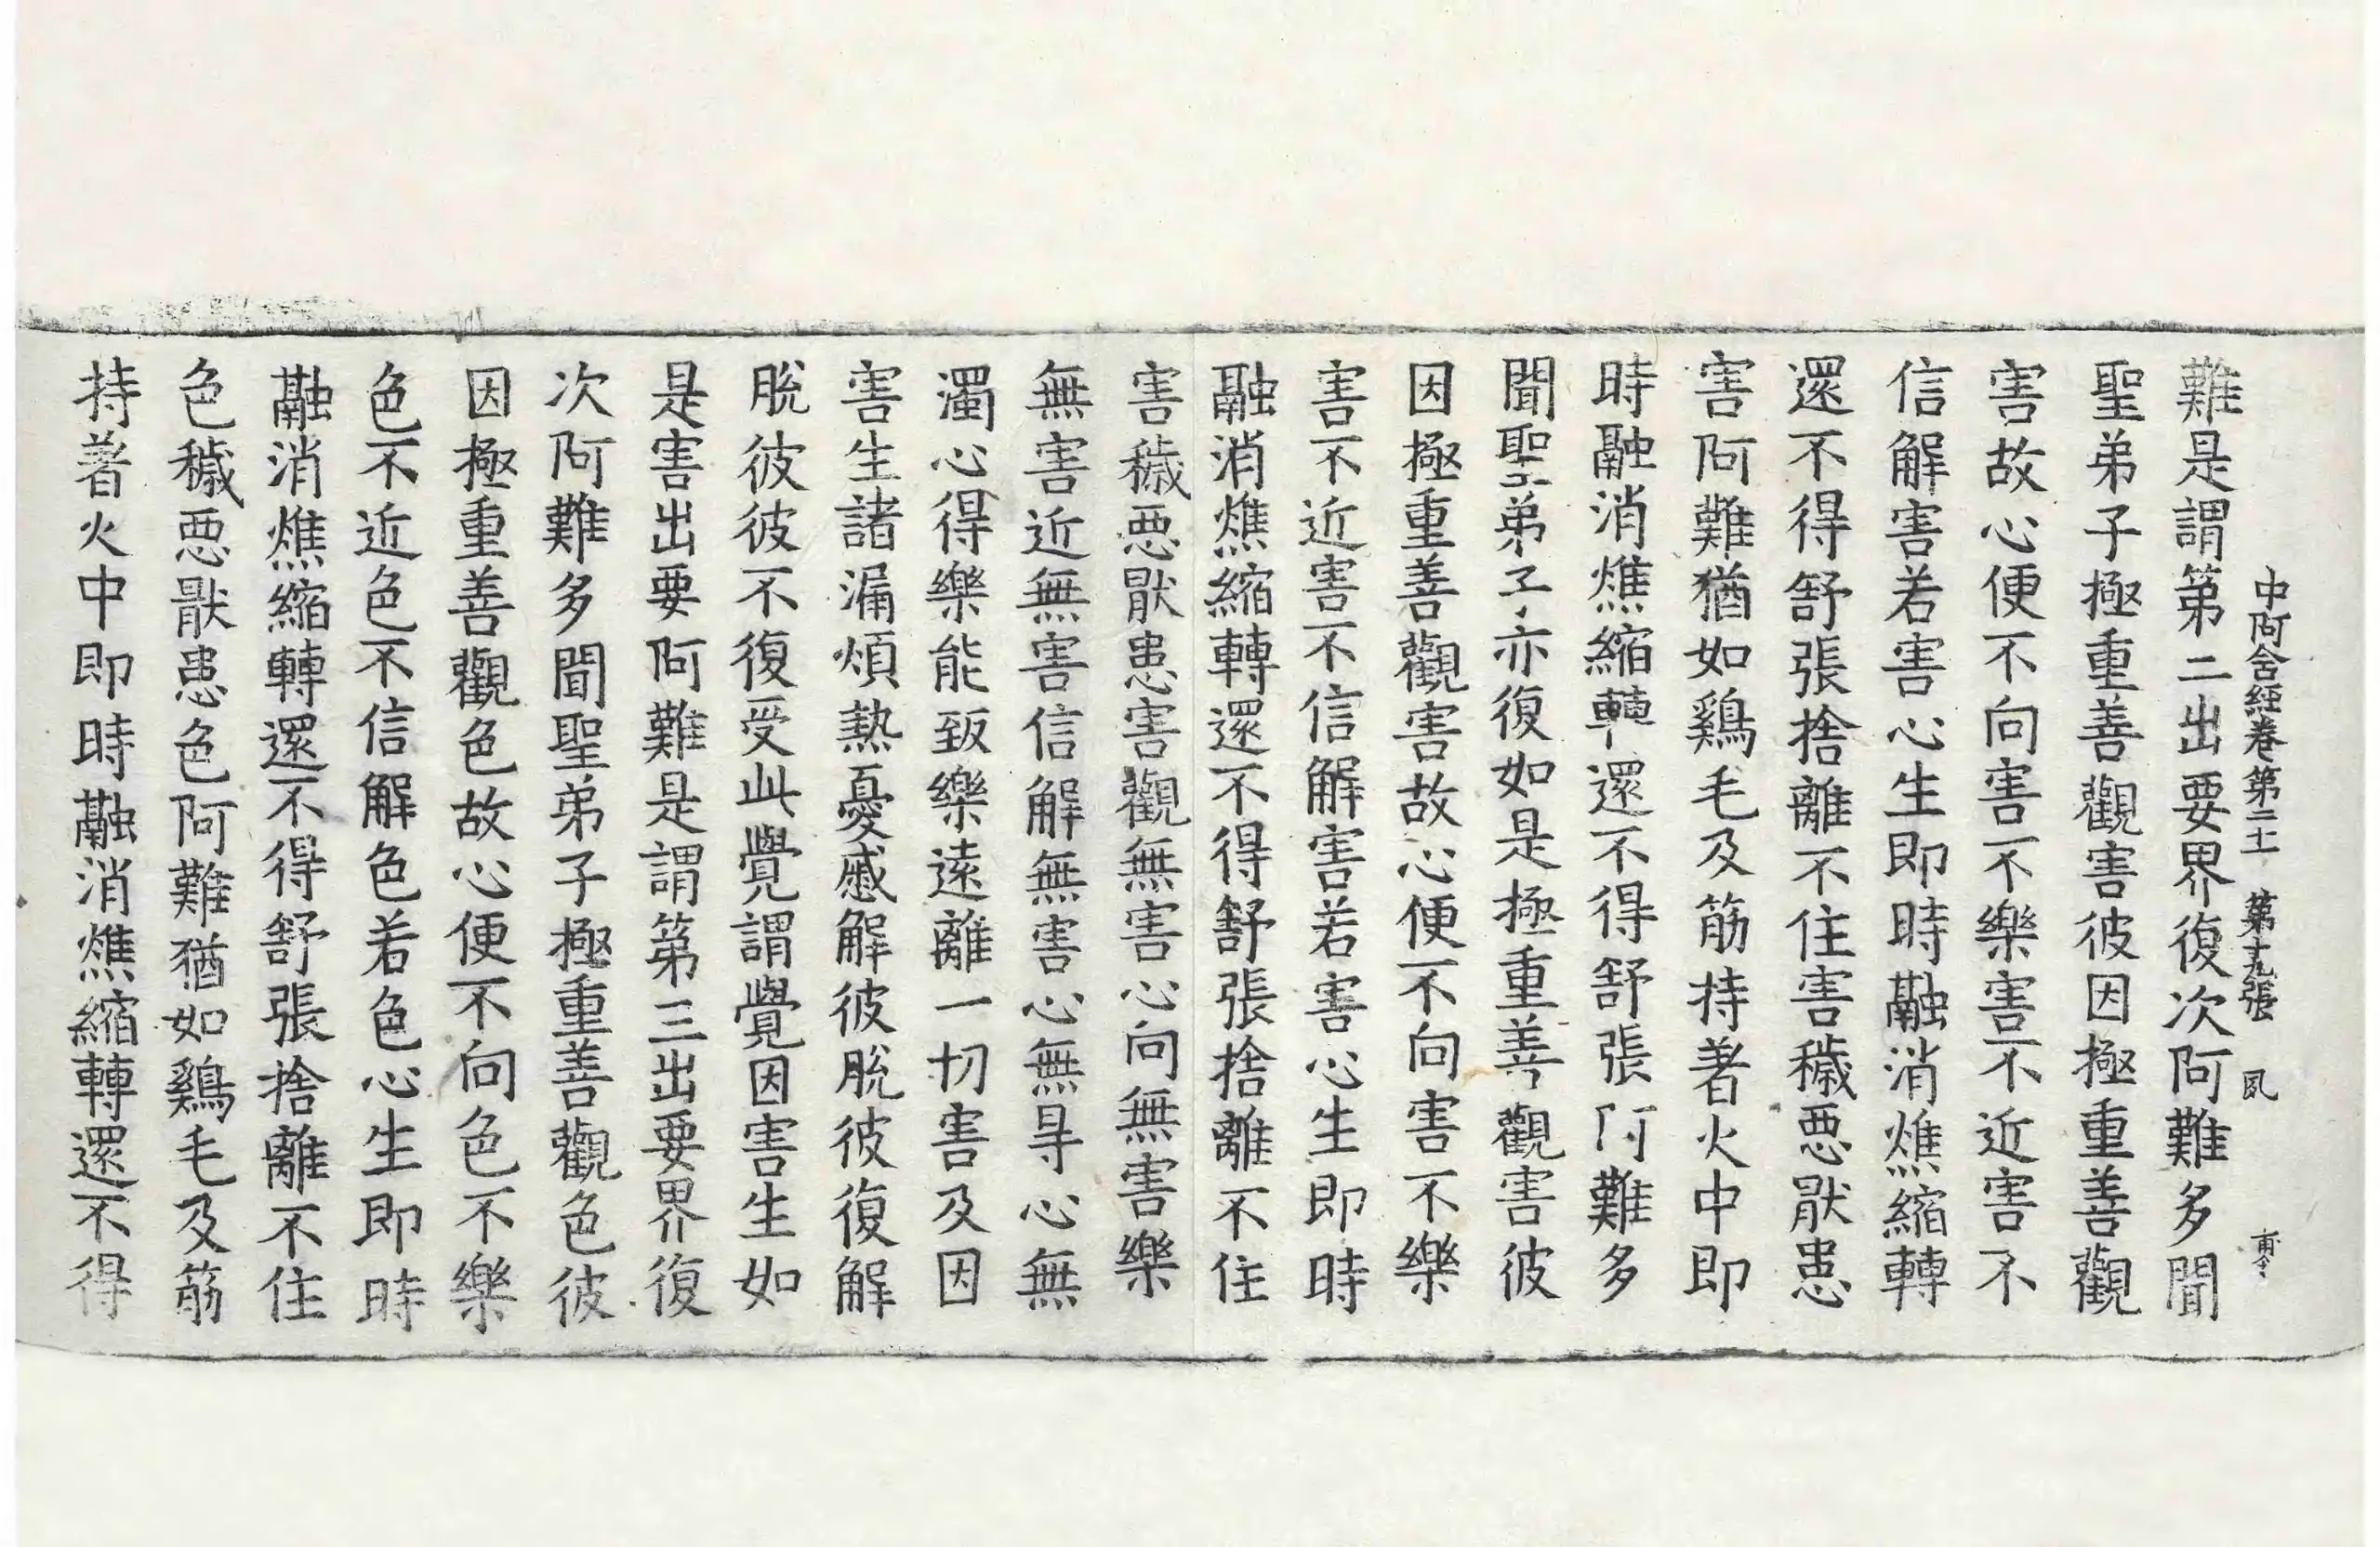 中阿含經卷第二十一 第十九張 夙
難是謂第二出要界復次阿難多聞
聖弟子極重善觀害彼因極重善觀
害故心便不向害不樂害不近害不
信解害若害心生即時融消燋縮轉
還不得舒張捨離不住害穢惡厭患
害阿難猶如鷄毛及筋持著火中即
時融消燋縮轉還不得舒張阿難多
聞聖弟子亦復如是極重善觀害彼
因極重善觀害故心便不向害不樂
害不近害不信解害若害心生即時
融消燋縮轉還不得舒張捨離不住
害穢惡厭患害觀無害心向無害樂
無害近無害信解無害心無㝵心無
濁心得樂能致樂遠離一切害及因
害生諸漏煩熱憂慼解彼脫彼復解
脫彼彼不復受此覺謂覺因害生如
是害出要阿難是謂第三出要界復
次阿難多聞聖弟子極重善觀色彼
因極重善觀色故心便不向色不樂
色不近色不信解色若色心生即時
融消燋縮轉還不得舒張捨離不住
色穢惡厭患色阿難猶如鷄毛及筋
持著火中即時融消燋縮轉還不得